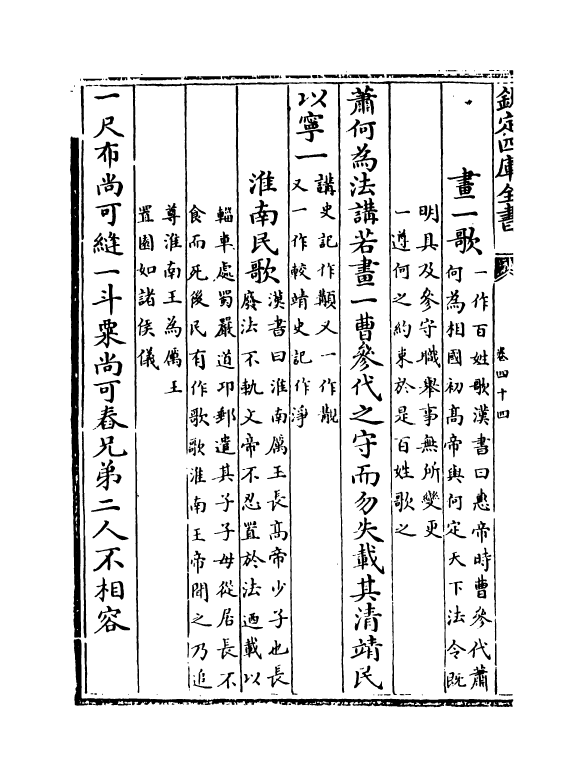 欽定四庫全書 卷四十四
畫一歌 一作百姓歌漢書曰惠帝時曹參代蕭
何為相國初髙帝與何定天下法令既
明具及參守職舉事無所變更
一遵何之約束於是百姓歌之
蕭何為法講若畫一曹參代之守而勿失載其清靖民
以寧一 講史記作顜又一作覯
又一作較靖史記作淨
淮南民歌 漢書曰淮南厲王長髙帝少子也長
廢法不軌文帝不忍置於法廼載以
輜車處蜀嚴道卭郵遣其子子母從居長不
食而死後民有作歌歌淮南王帝聞之乃追
尊淮南王為厲王
置園如諸侯儀
一尺布尚可縫一斗粟尚可舂兄弟二人不相容